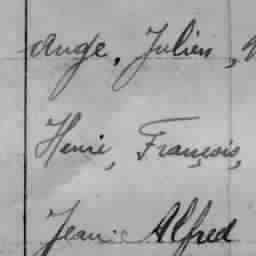 Ange, Julien,
Henri, François,
Jean Alfred